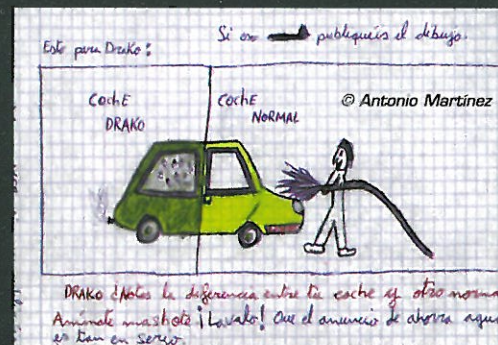 Si os publiquéis el dibujo.
Esto para Drako:
COCHE DRAKO
COCHE NORMAL
© Antonio Martínez
DRAKO ¿Notas la diferencia entre tu coche y otro norma
Anímate mashote ¡Lavalo! Que el anuncio de ahorra agua
es tan en serio.